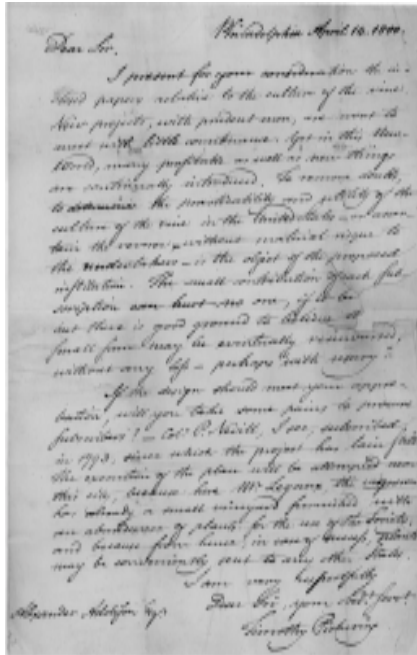 Philadelphia April 14. 1800.
Dear Sir,
I present for your consideration the in-
closed papers relative to the culture of the vine.
New projects, with prudent men, are wont to
meet with little countenance. Yet in this New
World, many profitable as well as new things
are continually introduced. To remove doubts,
to determine the practicability and utility of the
culture of the vine in the United States – or ascer-
tain the reverse, without material risque to
the undertakers – is the object of the proposed
institution. The small contribution of each sub-
scription can hurt no one, if to be
but there is good ground to believe it
small sum may be eventually reimbursed,
without any loss – perhaps with usury.
If the design should meet your appro-
bation, will you take some pains to procure
subscribers? – Col. P. Nevill, I see, subscribed
in 1793, since which the project has lain
The execution of the plan will be attempted near
this city, because here Mr. Legaux the
has already a small vineyard furnished with
an abundance of plants for the use of the Society,
and because from hence, in every
may be conveniently sent to any other State.
I am very respectfully
Dear Sir, your obt. servt.
Alexander Addison Esq.
Timothy Pickering